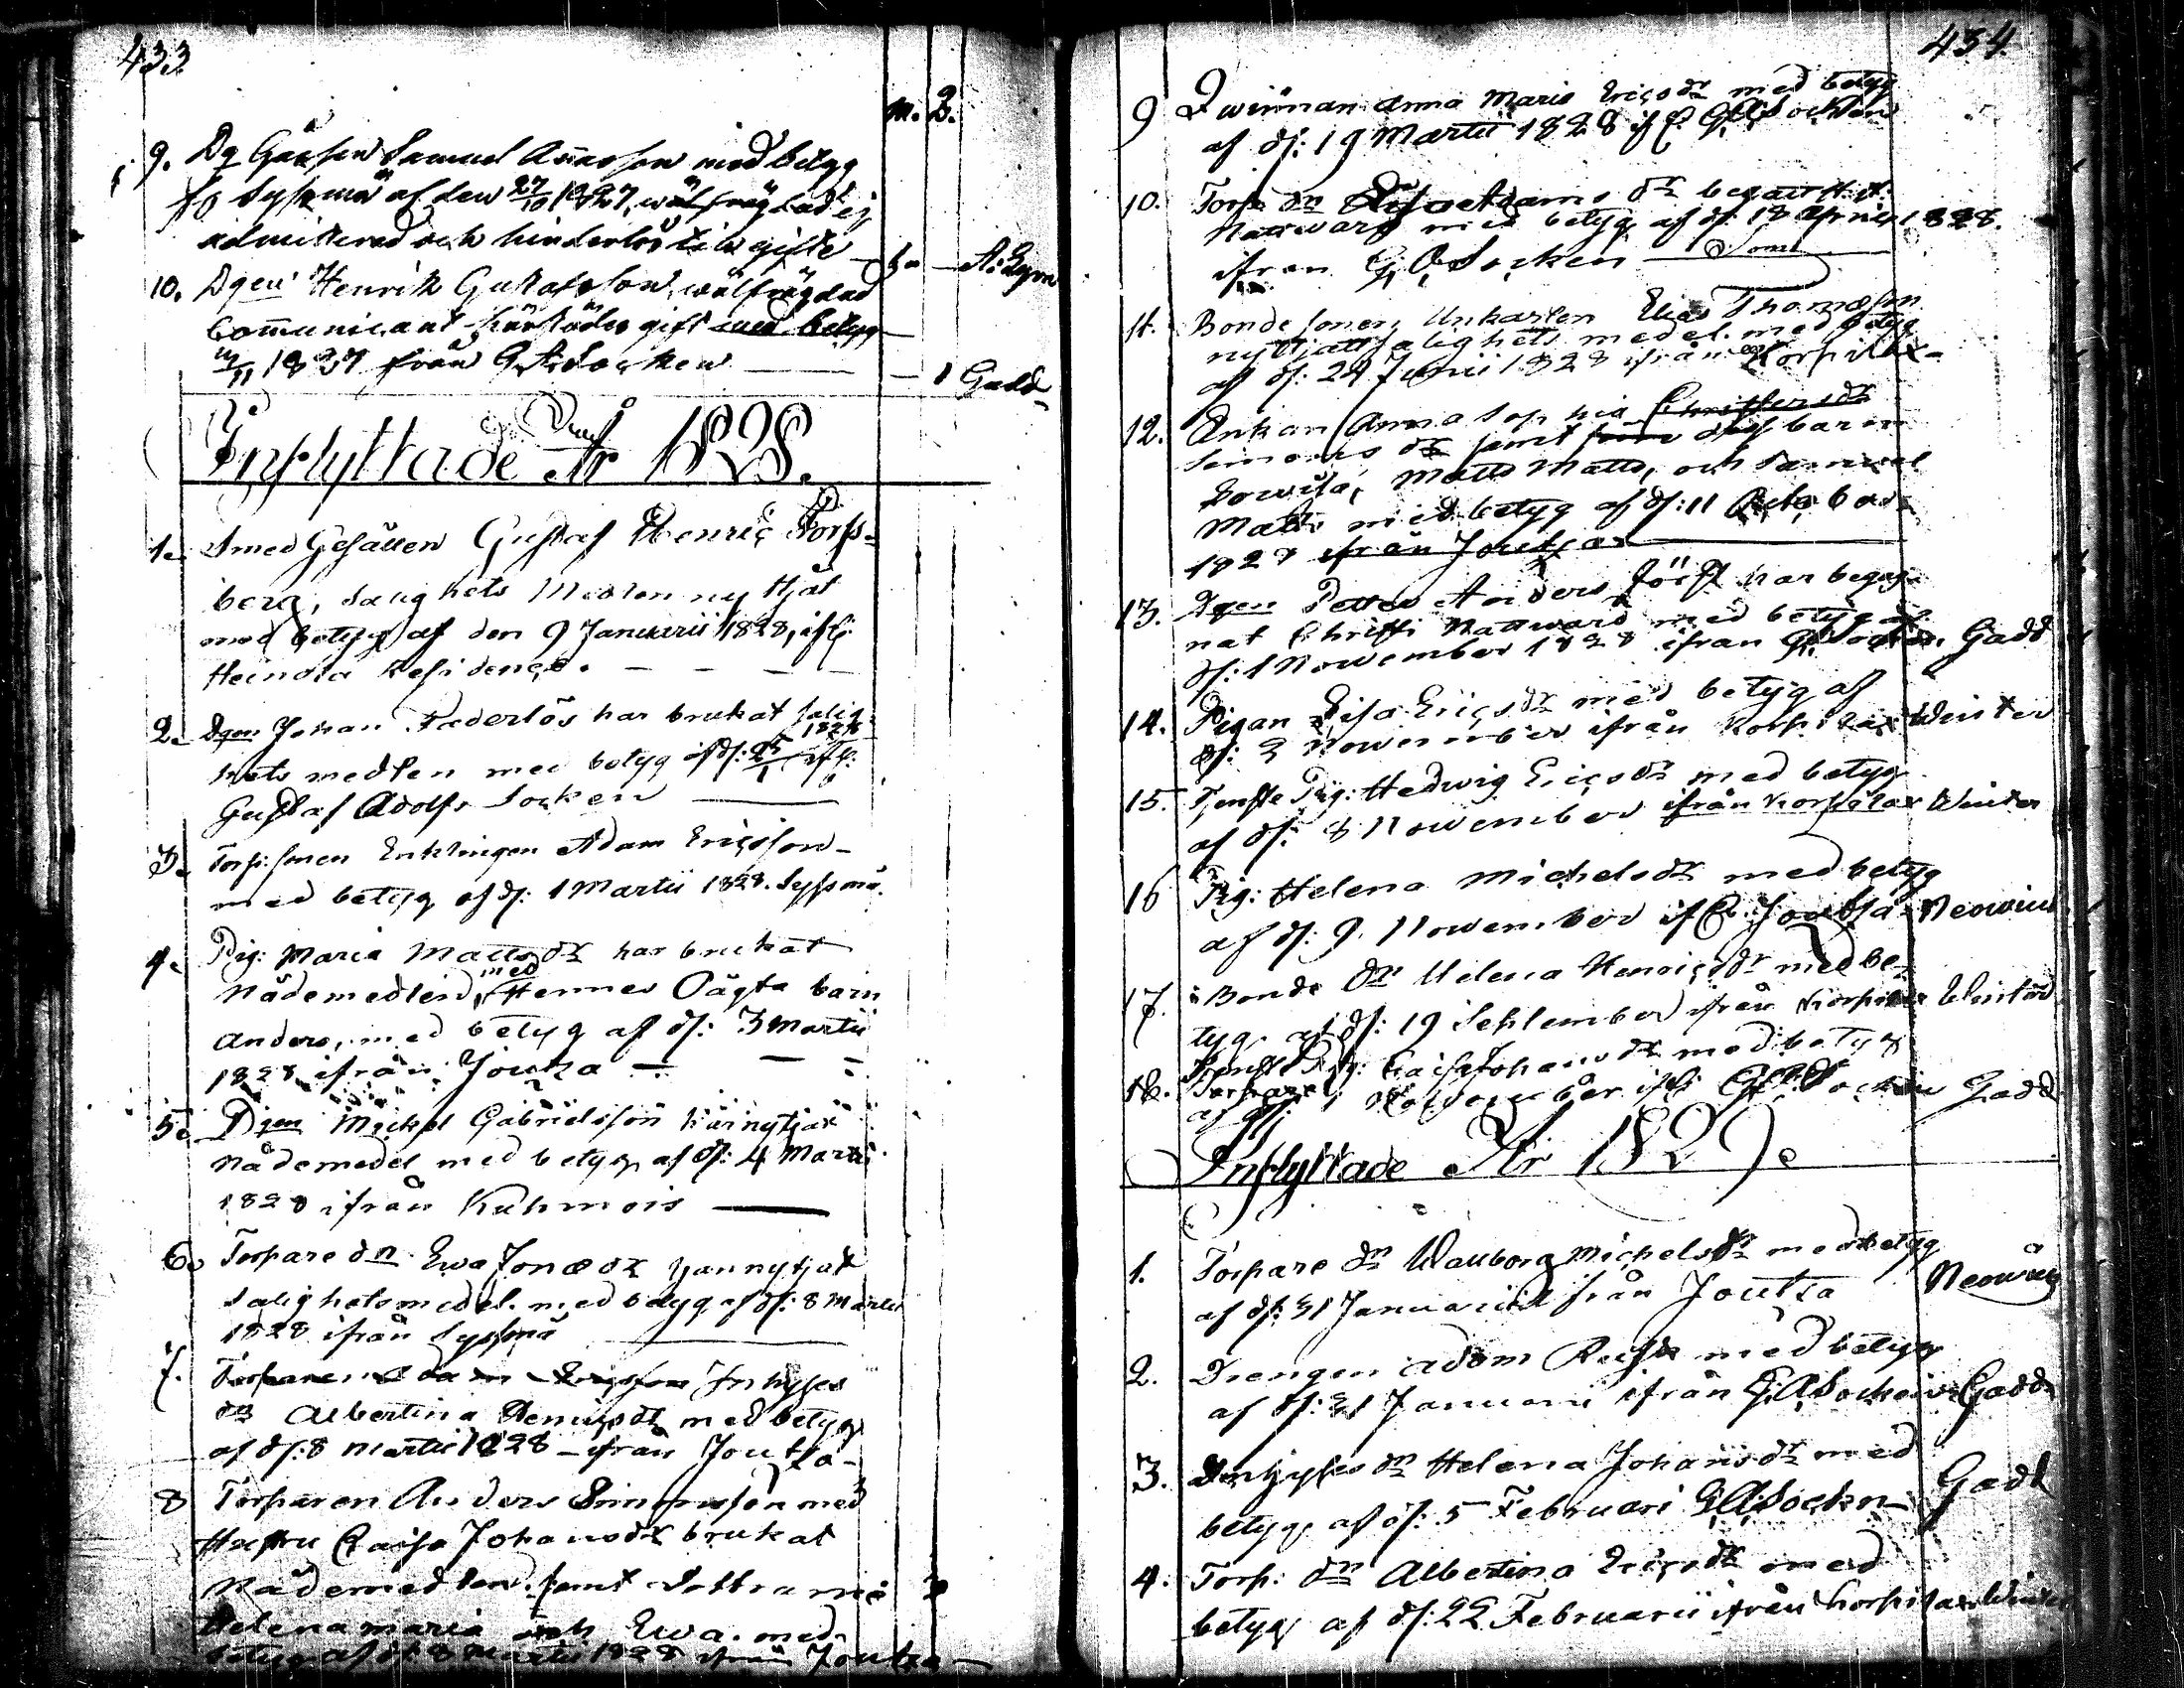 433
M. Q.
9. Dg Gårsen Samuel Anarsson med betyg
fr Syssmä af den 27/10 1827, wälfrägdad ej
admitterad och hinderlös till gifte
10. Dgen Henrik Gustafsson, wälfrägdad
Communicant härstädes gift med betyg
11/11 1827 från G. A. Socken 1 Gadd
Inflyttade År 1828.
1. Smed Gesällen Gustaf Henric Forss-
berg, salighets Medlen nyttjat
med betyg af den 9 Januarii 1828, ifr:
Heinola Residence.
2. Dgen Johan Federlös har brukat salig-
hets medlen med betyg af d: 25/1 1828 ifr:
Gustaf Adolfs Socken
3. Torp:sonen Enklingen Adam Ericsson
med betyg af d: 1 Martii 1828. Syssmä.
4. Pig: Maria Mattsdr har brukat
Nådemedlen, med Hennes Oägta barn
Anders, med betyg af d: 3 Martii
1828 ifrån Joutza
5. Dgen Mickel Gabrielsson har nytjat
Nådemedel med betyg af d: 4 Martii
1828 ifrån Kuhmois
6. Torpare dn Ewa Jonædr har nytjat
Salighetsmedel. med betyg af d: 8 Martii
1828 ifrån Syssmä
7. Torparen Adam Ericsson Inhyses
dn Albertina Henricsdr med betyg
af d: 8 Martii 1828 ifrån Joutza
8 Torparen Anders Simonsson med
Hustru Caisa Johansdr brukat
Nådemedlen. samt Döttrarne
Helena Maria och Ewa. med
betyg af d: 8 Martii 1828 ifrån Joutza
434
9 Qwinnan Anna Maria Ericsdr med betyg
af d: 19 Martii 1828 ifr: G. A. Socken
10. Torp dn Lisa Adamsdr begått H. H.
Nattward med betyg af d: 18 Aprill 1828.
ifran G. A. Socken
11. Bonde sonen Unkarlen Elias Thomæson
nyttjat salighets medel. med betyg
af d: 24 Junii 1828 ifrån Korpilax
12. Enkan Anna Sophia Christersdr
Simonsdr samt dess barn
Lowisa, Matts Matts, och Samuel
Matts med betyg af d: 11 October
1828 ifrån Joutza
13. Dgen Petter Anders Jöist har begag-
nat Christi Nattward med betyg af
d: 1 November 1828 ifran G. Socken. Gadd
14. Pigan Lisa Ericsdr med betyg af
d: 2 November ifrån Korpilax Winter
15. Tjenste Pig: Hedwig Ericsdr med betyg
af d: 8 November ifrån Korpilax Winter
16 Pig: Helena Michelsdr med betyg
af d: 9. November ifr: Joutsa Neowius
17. Bonde dn Helena Henricsdr med be-
tyg af d: 19 September ifrån Korpilax Winter
18. Tjenste Pig: Caisa Johansdr med betyg
af d: 1 November ifr: G. A. Socken Gadd
Inflyttade År 1829.
1. Torpare dn Walborg Michelsdr med betyg
af d: 31 Januarii ifrån Joutza Neowius
2. Drengen Adam Rusk med betyg
af d: 31 Januari ifrån G. A. Socken Gadd
3. Inhyses dn Helena Johansdr med
betyg af d: 5 Februari G. A. Sockn Gadd
4. Torp: dn Albertina Ericsdr med
betyg af d: 22 Februarii ifrån Korpilax Winter